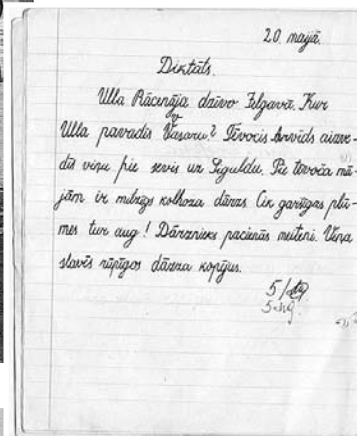 20. maijā.
Diktāts.
Ulla Rāceņāja dzīvo Jelgavā. Kur
Ulla pavadīs Vasaru? Tēvocis Arvīds aizve-
dīs viņu pie sevis uz Siguldu. Pie tēvoča mā-
jām ir milzīgs kolhoza dārzs. Cik garšīgas plū-
mes tur aug! Dārznieks pacienās meiteni. Viņa
slavēs rūpīgos dārza kopējus.
5/
5